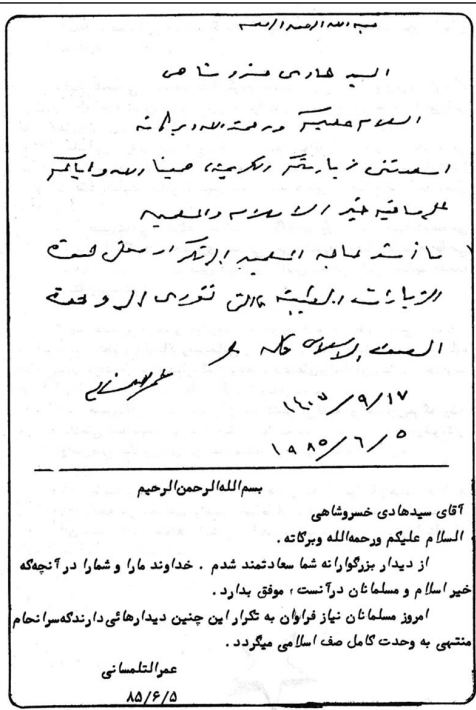 بسم الله الرحمن الرحيم
السيد هادى خسرو شاهى
السلام عليكم ورحمة الله وبركاته
اسعدتنى زيارتكم الكريمة، هيأنا الله واياكم
على ما فيه خير الاسلام والمسلمين
الزيارات الطيبة التى تؤدى الى وحدة
الصف الاسلامى كله
عمر التلمسانى
١٤٠٥/٩/١٧
١٩٨٥/٦/٥
بسم‌الله‌الرحمن‌الرحیم
آقای سیدهادی خسروشاهی
السلام علیکم ورحمه‌الله وبرکاته .
از دیدار بزرگوارانه شما سعادتمند شدم . خداوند مارا و شمارا درآنچه‌که
خیر اسلام و مسلمانان درآنست ، موفق بدارد .
امروز مسلمانان نیاز فراوان به تکرار این چنین دیدارهائی دارندکه‌سرانحام
منتهی به وحدت کامل صف اسلامی میگردد .
عمرالتلمسانی
۸۵/۶/۵